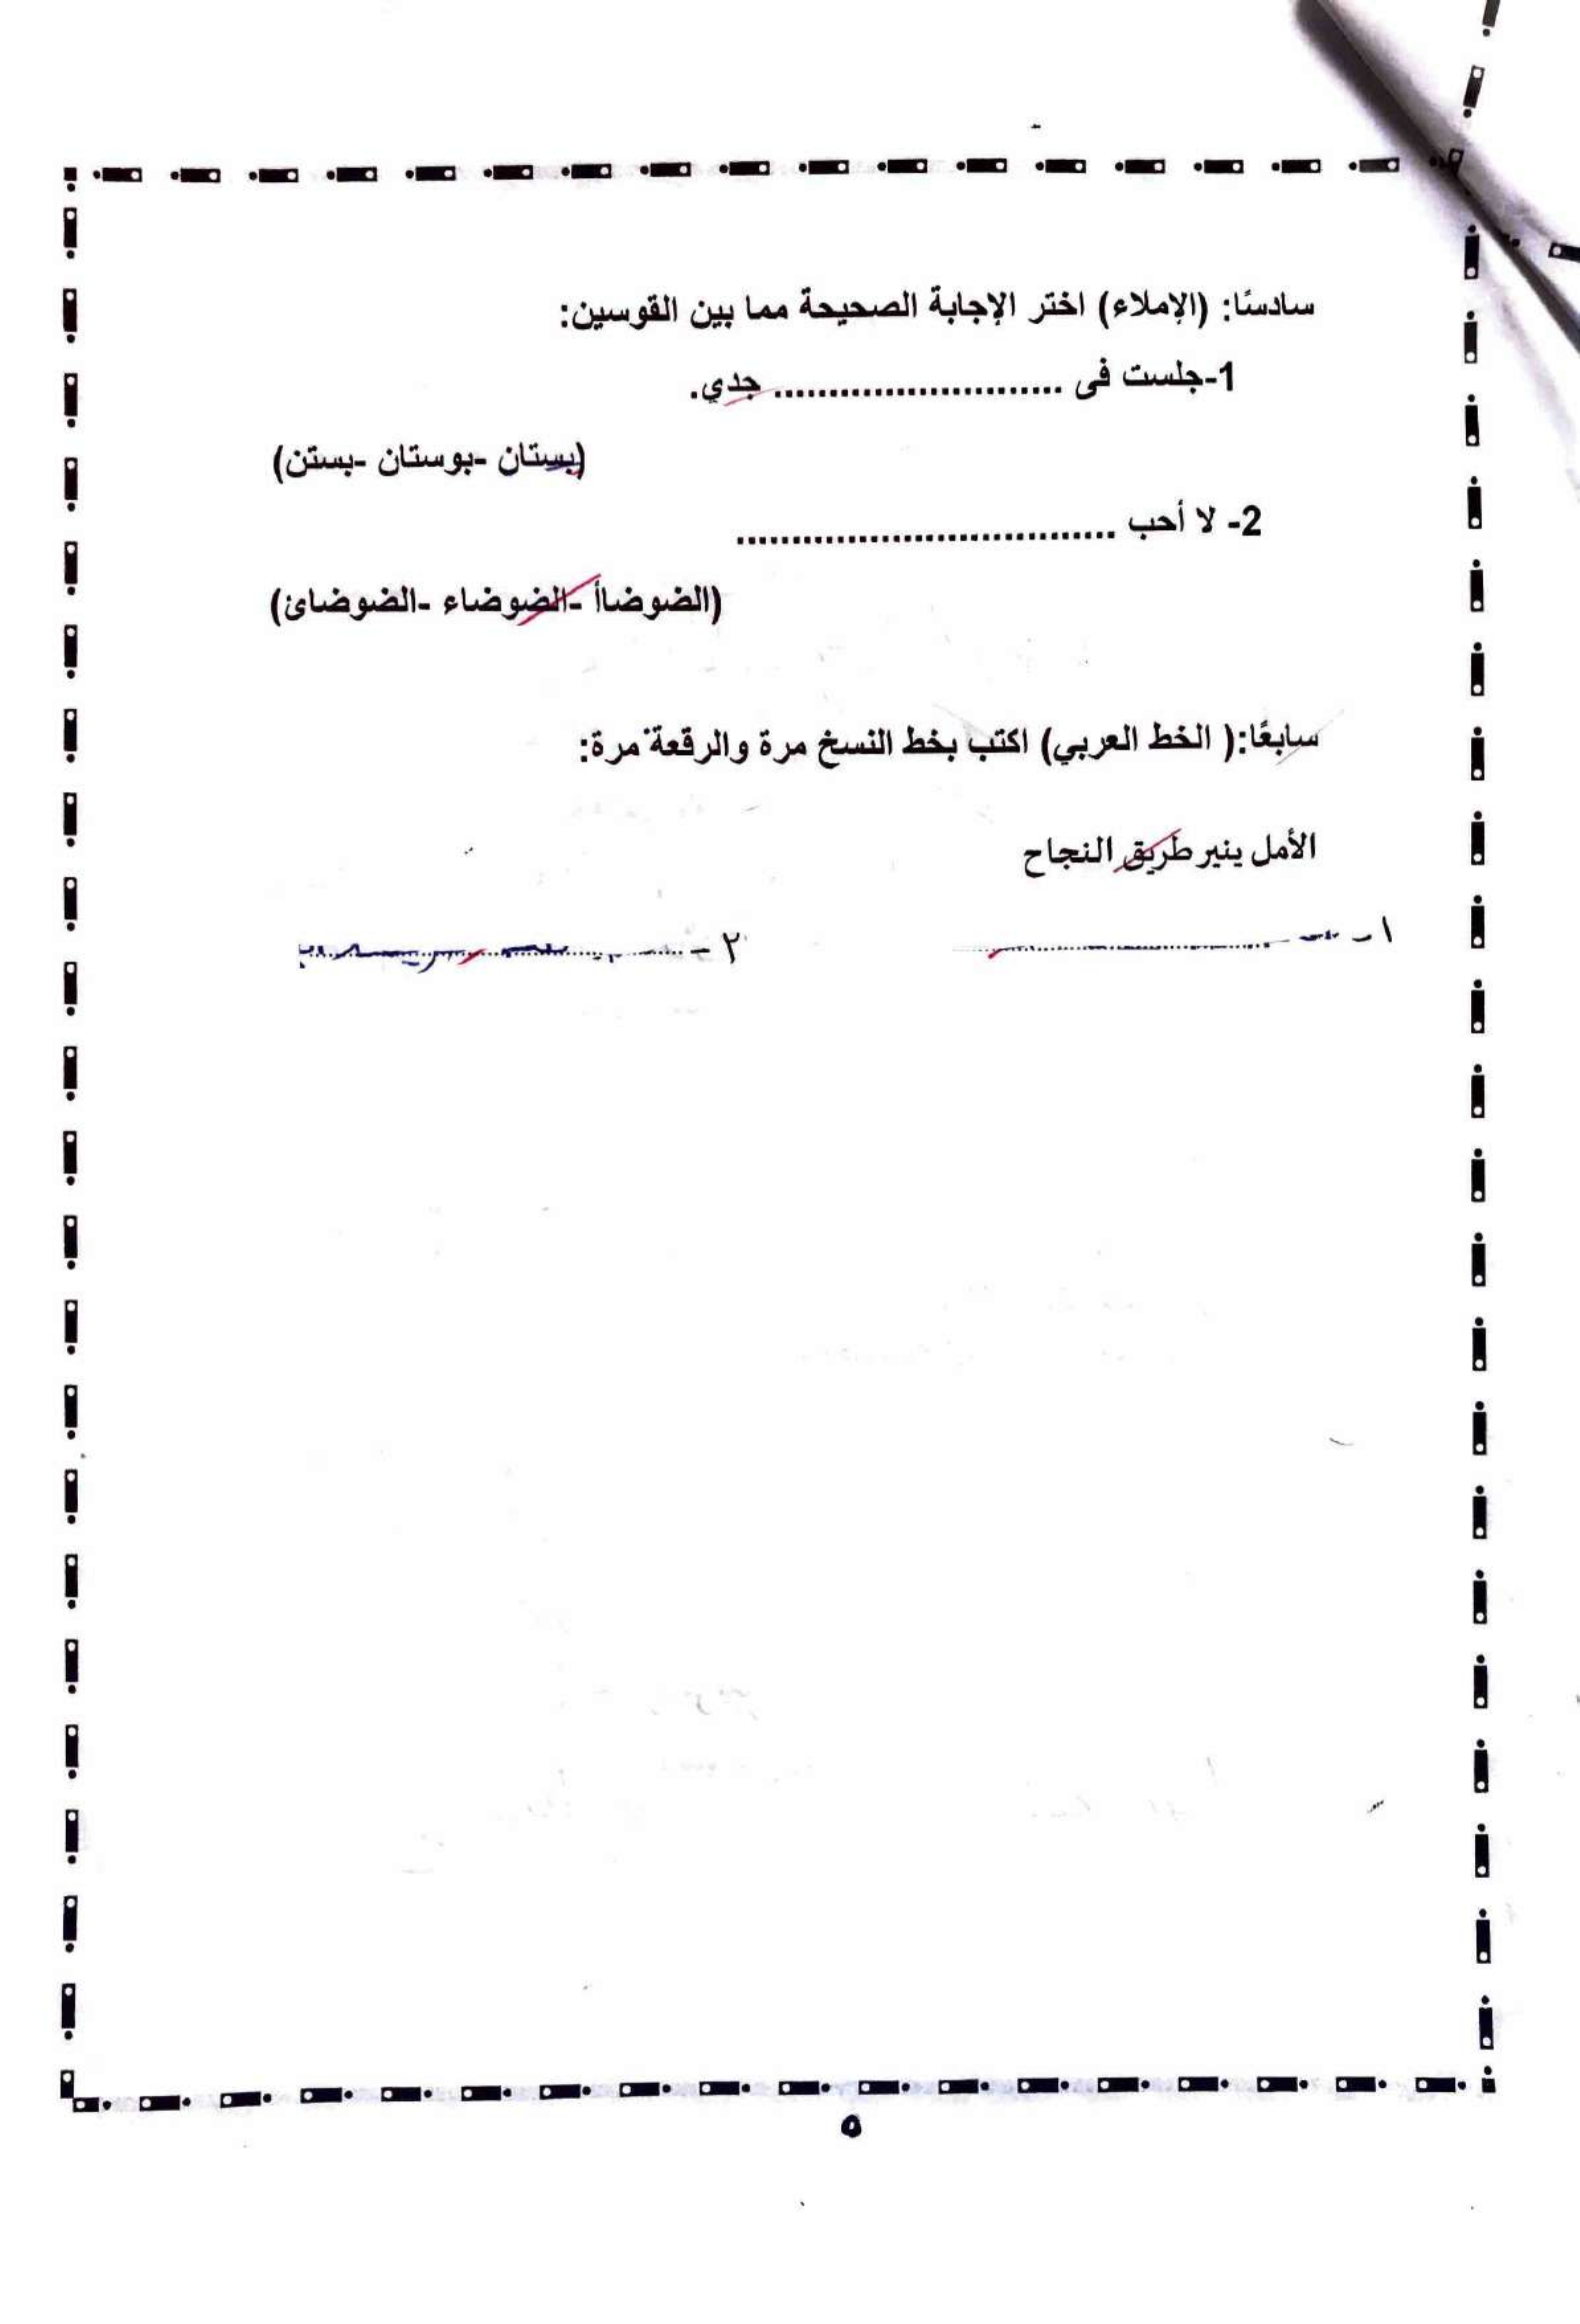 سادسًا: (الإملاء) اختر الإجابة الصحيحة مما بين القوسين:
1-جلست فى ........................... جدي.
(بستان -بوستان -بستن)
2- لا أحب ...................................
(الضوضاأ -الضوضاء -الضوضائ)
سابعًا:( الخط العربي) اكتب بخط النسخ مرة والرقعة مرة:
الأمل ينير طريق النجاح
١- ........................... ٢- ...........................
٥